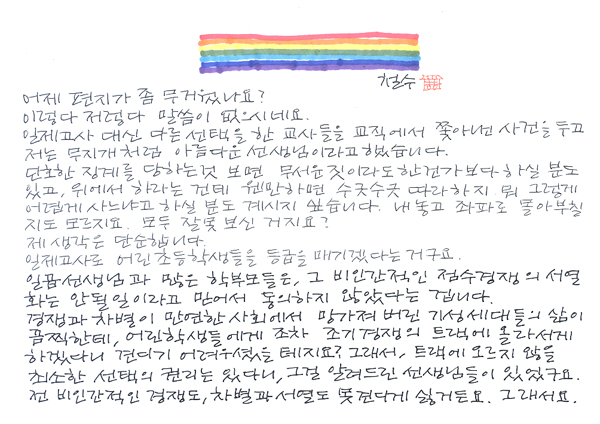 철수
어제 편지가 좀 무거웠나요?
이렇다 저렇다 말씀이 없으시네요.
일제고사 대신 다른 선택을 한 교사들을 교직에서 쫓아낸 사건을 두고
저는 무지개처럼 아름다운 선생님이라고 했습니다.
단호한 징계를 당하는것 보면 무서운짓이라도 한건가보다 하실 분도
있고, 위에서 하라는 건데 웬만하면 수굿수굿 따라하지 뭐 그렇게
어렵게 사느냐고 하실 분도 계시지 싶습니다. 내놓고 좌파로 몰아부칠
지도 모르지요. 모두 잘못 보신 거지요?
제 생각은 단순합니다.
일제고사로 어린 초등학생들을 등급을 매기겠다는 거구요.
일곱선생님과 많은 학부모들은, 그 비인간적인 점수경쟁의 서열
화는 안될일이라고 믿어서 동의하지 않았다는 겁니다.
경쟁과 차별이 만연한 사회에서 망가져 버린 기성세대들의 삶이
끔찍한데, 어린학생들에게 조차 조기경쟁의 트랙에 올라서게
하겠다니 견디기 어려우셨을 테지요? 그래서, 트랙에 오르지 않을
최소한 선택의 권리는 있다니, 그걸 알려드린 선생님들이 있었구요.
전 비인간적인 경쟁도, 차별과 서열도 못견디게 싫거든요. 그래서요.